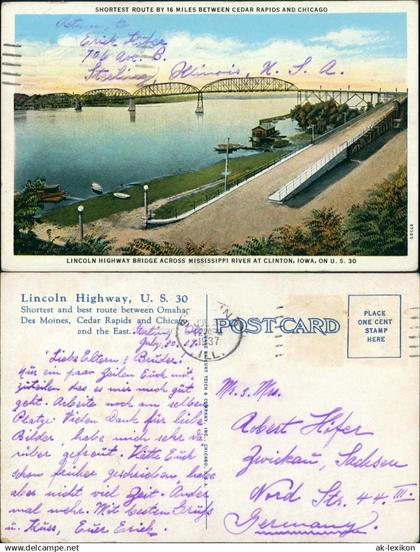 SHORTEST ROUTE BY 16 MILES BETWEEN CEDAR RAPIDS AND CHICAGO
Return to
Erick Höfer
706 Ave. B.
Sterling, Illinois, U. S. A.
LINCOLN HIGHWAY BRIDGE ACROSS MISSISSIPPI RIVER AT CLINTON, IOWA, ON U. S. 30
Lincoln Highway, U. S. 30
Shortest and best route between Omaha,
Des Moines, Cedar Rapids and Chicago
and the East.
Sterling, Ill.
July 30. 37.
Liebe Eltern & Brüder.
Nur ein paar Zeilen Euch mit-
zuteilen das es mir noch gut
geht. Arbeite noch am selben
Platze. Vielen Dank für liebe
Bilder, habe mich sehr da
rüber gefreut. Hätte Euch
schon früher geschrieben, habe
aber nicht viel Zeit. Ander
mal mehr. Mit besten Grüß
u. Küss, Euer Erick.
1937
ILL.
POST-CARD
PLACE
ONE CENT
STAMP
HERE
M. & Mrs.
Robert Höfer
Zwickau, Sachsen
Nord Str. 44 III.
Germany.
© ak-lexikon